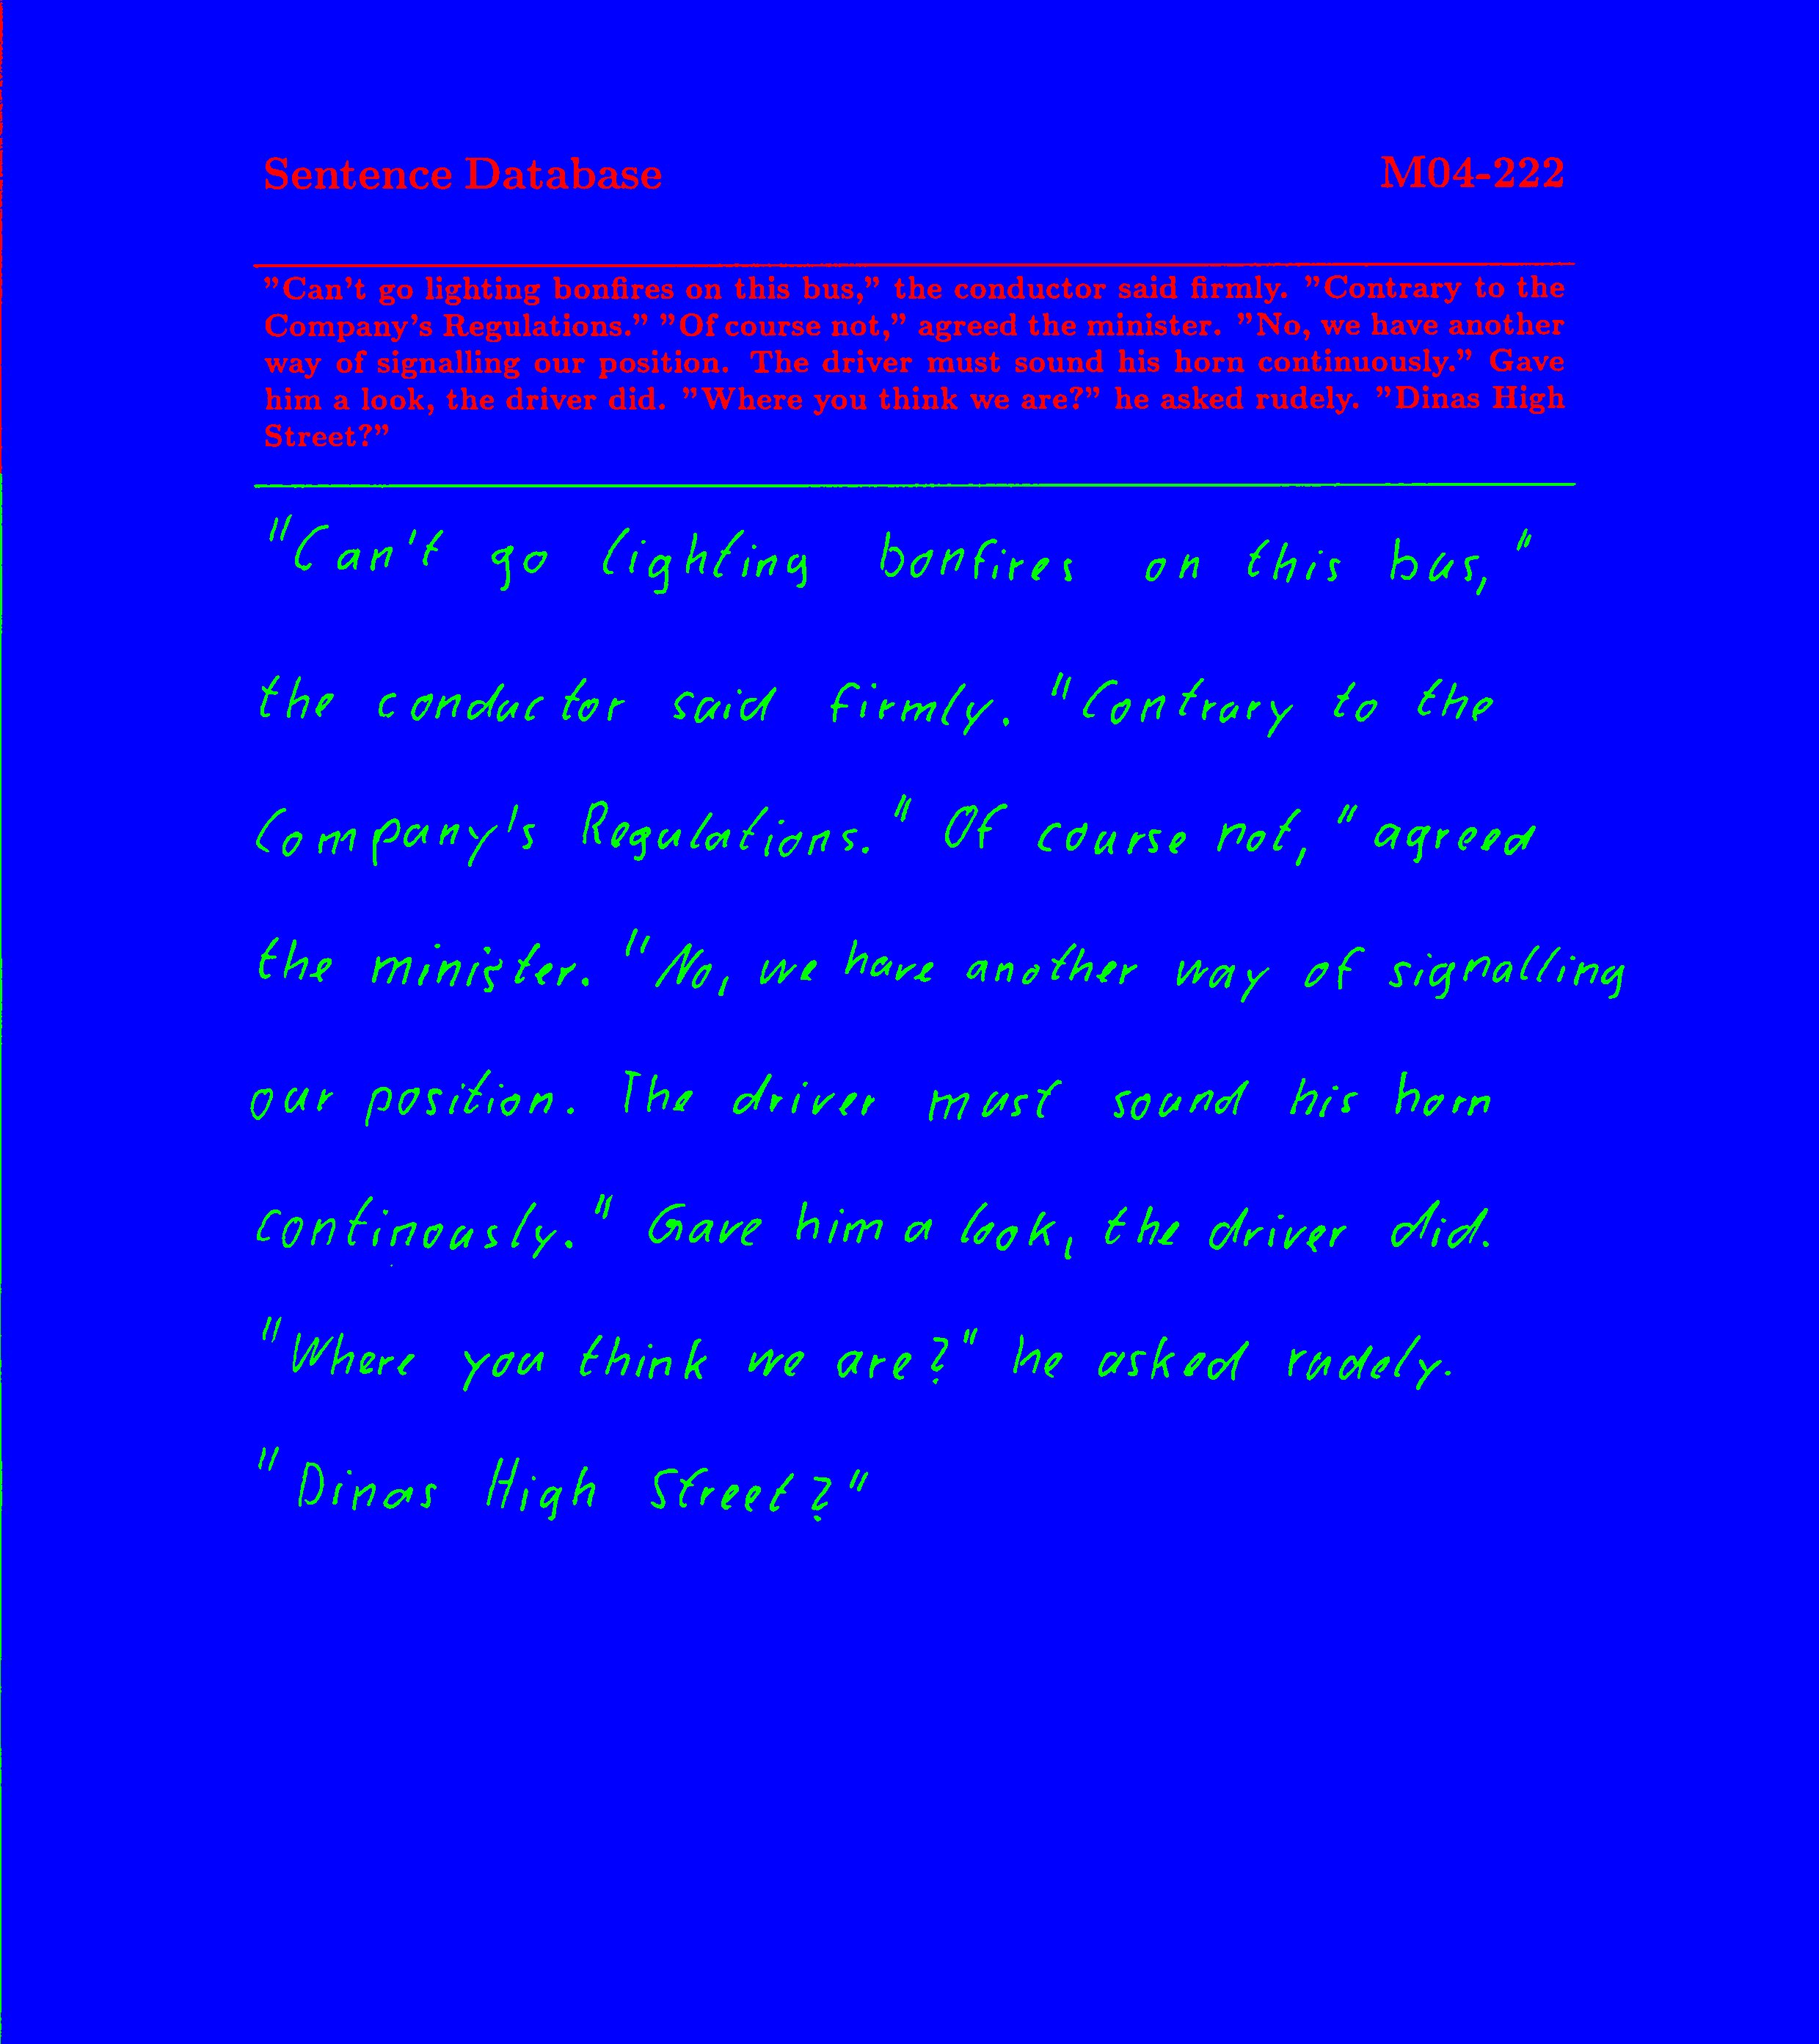 Sentence Database M04-222
"Can't go lighting bonfires on this bus," the conductor said firmly. "Contrary to the
Company's Regulations." "Of course not," agreed the minister. "No, we have another
way of signalling our position. The driver must sound his horn continuously." Gave
him a look, the driver did. "Where you think we are?" he asked rudely. "Dinas High
Street?"
"Can't go lighting bonfires on this bus,"
the conductor said firmly. "Contrary to the
Company's Regulations." Of course not," agreed
the minister. "No, we have another way of signalling
our position. The driver must sound his horn
continously." Gave him a look, the driver did.
"Where you think we are?" he asked rudely.
"Dinas High Street?"